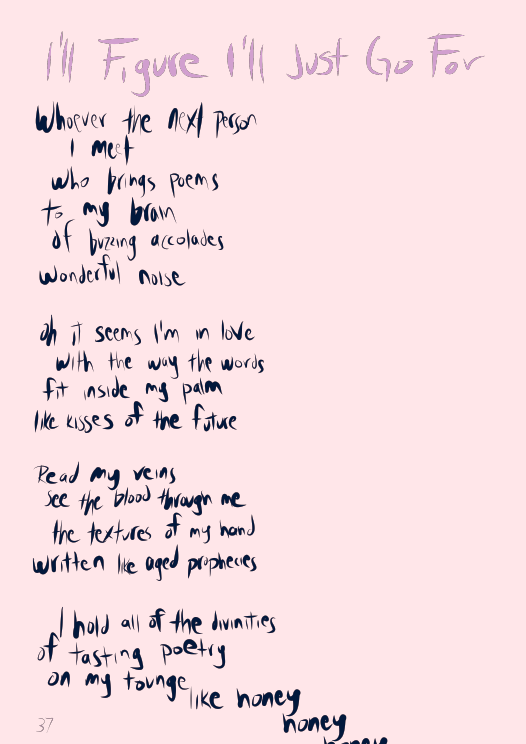 I'll Figure I'll Just Go For
Whoever the next person
I meet
who brings poems
to my brain
of buzzing accolades
wonderful noise
oh it seems I'm in love
with the way the words
fit inside my palm
like kisses of the future
Read my veins
see the blood through me
the textures of my hand
written like aged prophecies
I hold all of the divinities
of tasting poetry
on my tounge
like honey
honey
37